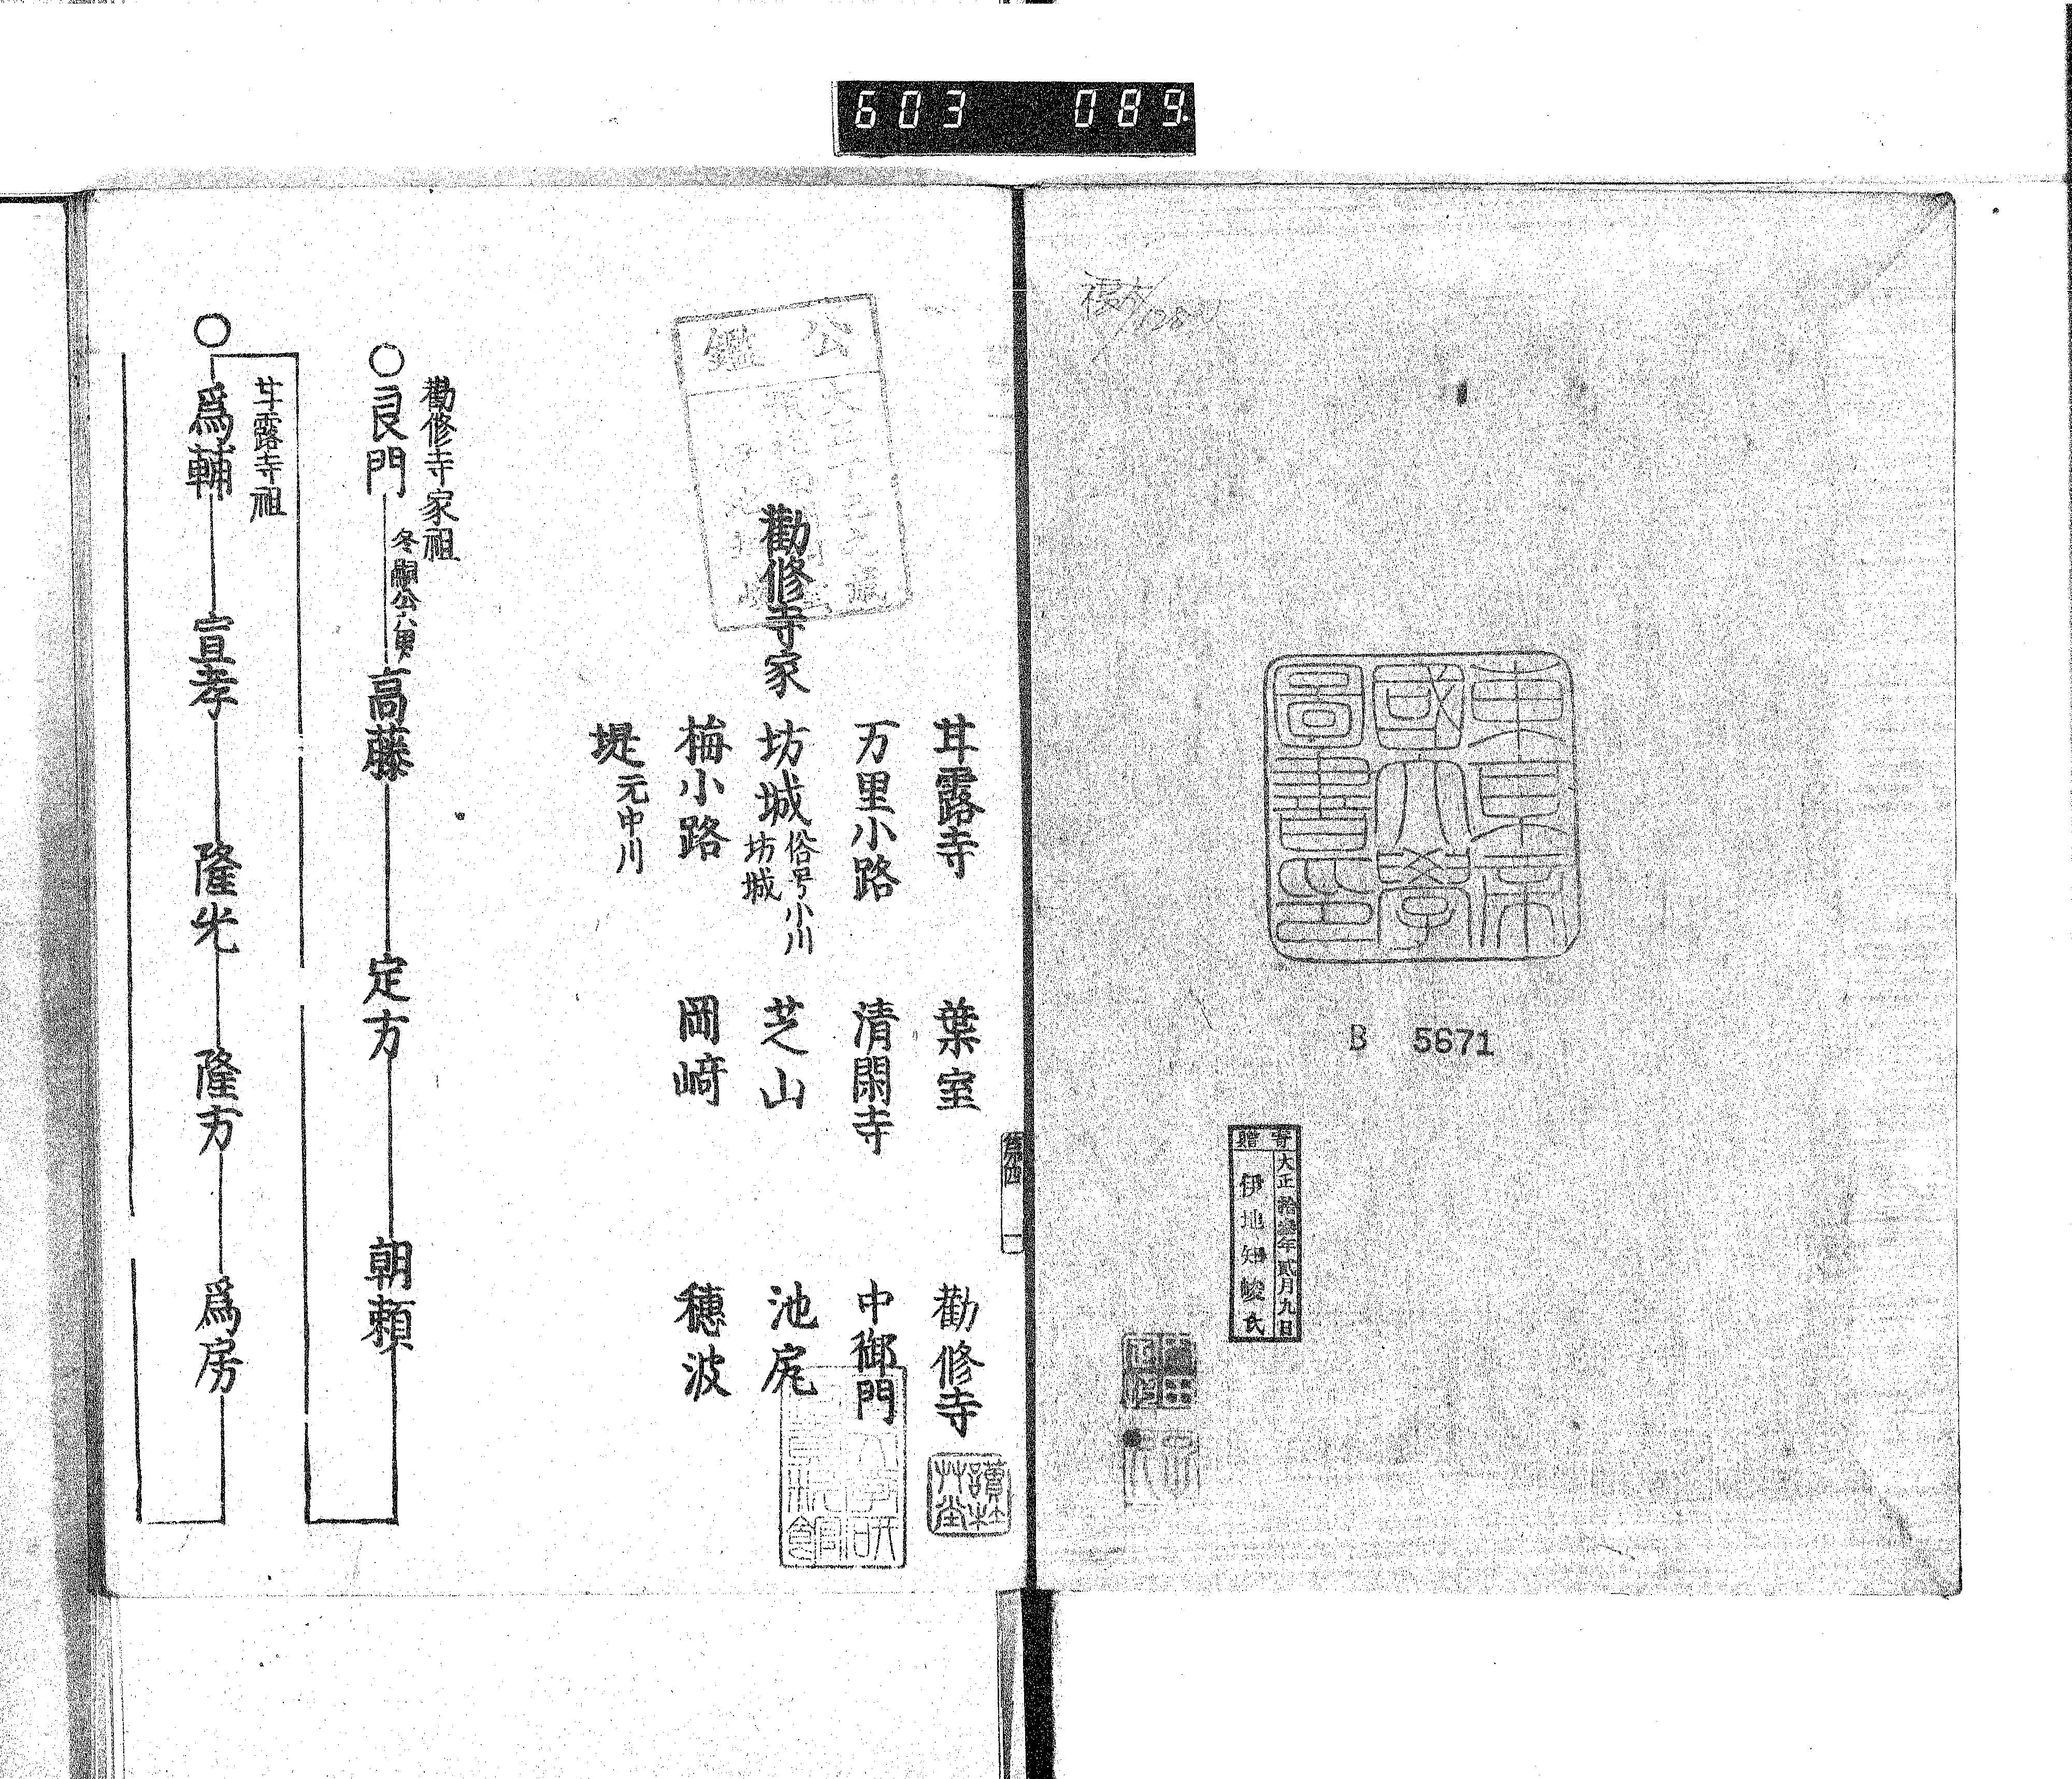 603 089
東京帝
國大學
圖書印
B 5671
寄贈
大正拾叁年貳月九日
伊地知峻氏
甘露寺 葉室 勸修寺
万里小路 清閑寺 中御門
勸修寺家
坊城 俗号小川坊城 芝山 池尻
梅小路 岡﨑 穗波
堤 元中川
公鑑
讀杜艸堂
藤四 一
勸修寺家祖
○良門 冬嗣公六男 高藤 定方 朝頼
甘露寺祖
○爲輔 宣孝 隆光 隆方 爲房